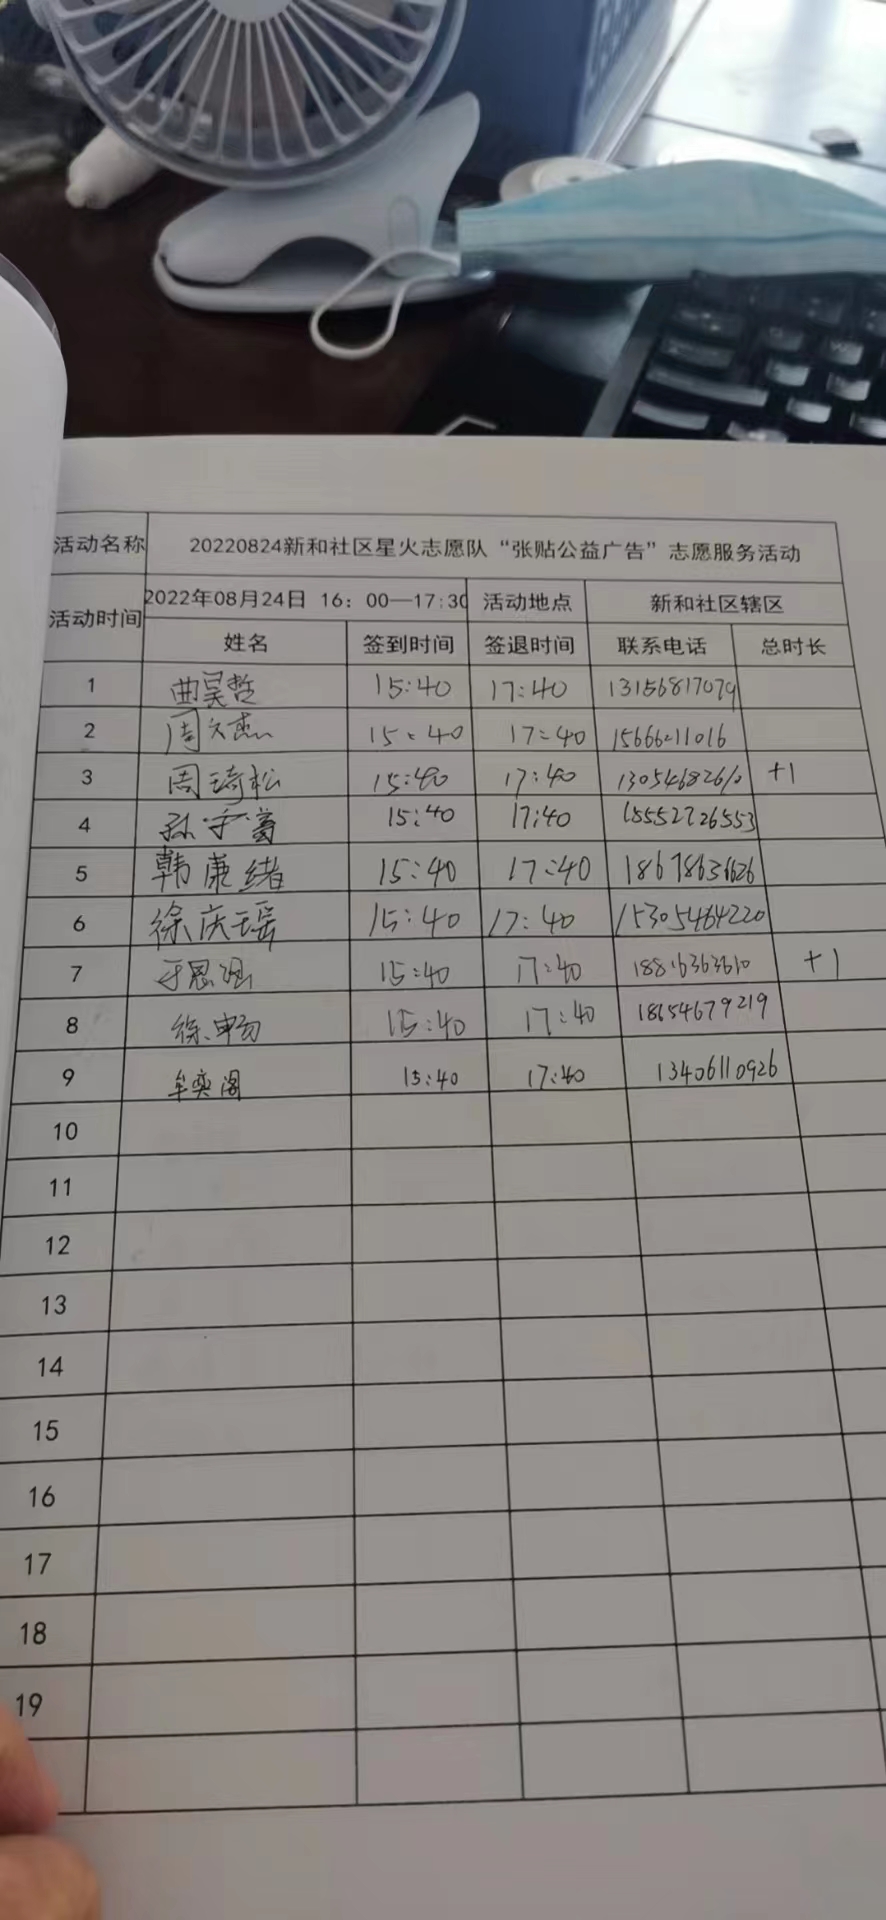 活动名称 20220824新和社区星火志愿队“张贴公益广告”志愿服务活动
活动时间 2022年08月24日 16：00—17:30 活动地点 新和社区辖区
姓名 签到时间 签退时间 联系电话 总时长
1 曲昊哲 15:40 17:40 13156817079
2 周文杰 15:40 17:40 15666211016
3 周琦松 15:40 17:40 +1
4 孙 15:40 17:40 15552726553
5 韩廉绪 15:40 17:40
6 徐庆瑶 15:40 17:40 15305464220
7 于恩 15:40 17:40 +1
8 徐畅 15:40 17:40 18654679219
9 牟奕阁 15:40 17:40 13406110926
10
11
12
13
14
15
16
17
18
19